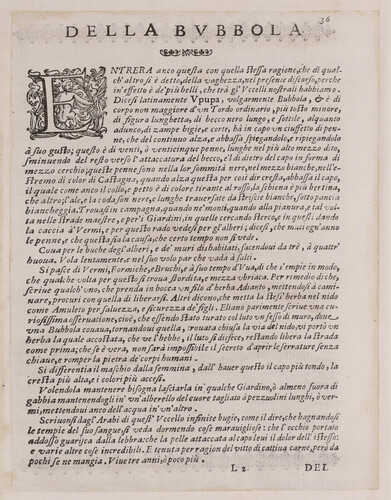 36
DELLA BVBBOLA
ENTRERA anco questa con quella stessa ragione, che di qual-
ch'altro si è detto, della vaghezza, nel presente discorso, perche
in'effetto è de'più belli, che trà gl'Vccelli nostrali habbiamo.
Dicesi latinamente Vpupa, volgarmente Bubbola, & è di
corpo non maggiore d'vn Tordo ordinario, più tosto minore,
di figura lunghetta, di becco nero lungo, e sottile, alquanto
adunco, di zampe bigie, e corte, hà in capo vn ciuffetto di pen-
ne, che del continuo alza, e abbassa spiegandolo, e ripiegandolo
à suo gusto; questo è di venti, ò venticinque penne, lunghe nel più alto mezzo dito,
sminuendo del resto verso l'attaccatura del becco, e'l di dietro del capo in forma di
mezzo cerchio queste penne sono nella lor sommità nere, nel mezzo bianche, nell'e-
stremo di color di Castagna, quando alza questa per così dir cresta, abbassa il capo,
il quale come anco il collo, e petto è di colore tirante al rosso, la schiena è più bertina,
che altro; l'ale, e la coda son nere, e lunghe trauersate da striscie bianche, sotto pancia
biancheggia. Trouasi in campagna quando ne' monti, quando alla pianura, e tal vol-
ta nelle strade maestre, e per'i Giardini, in quelle cercando sterco, e in questi dando
la caccia à Vermi, e per questo rado vedesi per gl'alberi; dicesi che muti ogn'anno
le penne, e che questa sia la causa, che certo tempo non si vede.
Coua per le buche degl'alberi, e de' muri dishabitati, facendoui da tre, à quattr'
huoua. Vola lentamente, e nel suo volo par che vada à salti.
Si pasce di Vermi, Formiche, e Bruchi, à suo tempo d'Vua, di che s'empie in modo,
che qualche volta per questo si troua stordita, e mezza vbriaca. Per rimedio di che,
scriue qualch'vno, che prenda in bocca vn filo d'herba Adianto, mettendosi à cami-
nare, procuri con quella di liberarsi. Altri dicono, che metta la stess'herba nel nido
come Amuleto per saluezza, e sicurezza de'figli. Eliano parimente scriue vna cu-
riosissima osseruatione, cioè, che essendo stato turato col luto vn fesso di muro, doue
vna Bubbola couaua, tornandoui quella, e trouata chiusa la via del nido, vi portò vn
herba la quale accostata, oue vel'hebbe, il luto si disfece, restando libera la strada
come prima; che s'è vera, non sarà impossibile il secreto d'aprir le serrature senza
chiaue, e romper la pietra de'corpi humani.
Si differentia il maschio dalla femmina, dall'hauer questo il capo più tondo, la
cresta più alta, e i colori più accesi.
Volendola mantenere bisogna lasciarla in'qualche Giardino, ò almeno fuora di
gabbia mantenendogli in'vn'alberello del cuore tagliato à pezzuolini lunghi, ò ver-
mi, mettendoui anco dell'acqua in'vn'altro.
Scriuono gl'Arabi di quest'Vccello infinite bugie, come il dire, che bagnandosi
le tempie del suo sangue, si veda dormendo cose marauigliose: che l'occhio portato
addosso guarisca dalla lebbra: che la pelle attaccata al capo leui il dolor dell'istesso:
e varie altre cose incredibili. E tenuta per ragion del vitto di cattiua carne, però da
pochi se ne mangia. Viue tre anni, ò poco più.
L 2 DEL